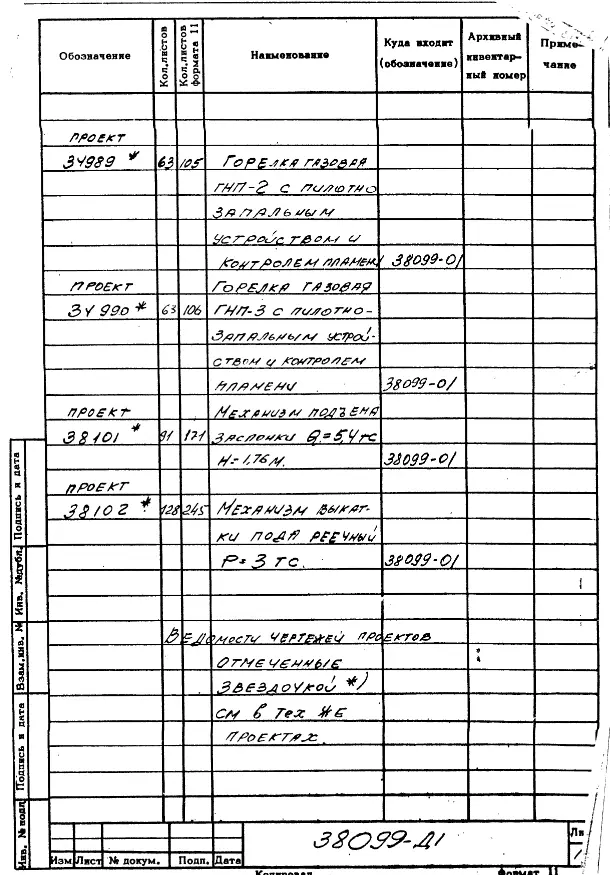 Обозначение Кол.листов Кол.листов формата 11 Наименование Куда входит (обозначение) Архивный инвентар- ный номер Приме- чание
ПРОЕКТ
34989 * 63 105 ГОРЕЛКА ГАЗОВАЯ
ГНП-2 С ПИЛОТНО
ЗАПАЛЬНЫМ
УСТРОЙСТВОМ И
КОНТРОЛЕМ ПЛАМЕНИ 38099-01
ПРОЕКТ ГОРЕЛКА ГАЗОВАЯ
34990 * 63 106 ГНП-3 С ПИЛОТНО-
ЗАПАЛЬНЫМ УСТРОЙ-
СТВОМ И КОНТРОЛЕМ
ПЛАМЕНИ 38099-01
ПРОЕКТ МЕХАНИЗМ ПОДЪЕМА
38101 * 91 121 ЗАСЛОНКИ Q=5,4 ТС
Н=1,76 М. 38099-01
ПРОЕКТ
38102 * 128 245 МЕХАНИЗМ ВЫКАТ-
КИ ПОДА РЕЕЧНЫЙ
Р=3 ТС. 38099-01
ВЕДОМОСТИ ЧЕРТЕЖЕЙ ПРОЕКТОВ
ОТМЕЧЕННЫЕ
ЗВЕЗДОЧКОЙ *)
СМ В ТЕХ ЖЕ
ПРОЕКТАХ.
Подпись и дата
Инв. №дубл.
Взам.инв. №
Подпись и дата
Инв. №подл
38099-Д1
Ли
Изм Лист № докум. Подп. Дата
Копировал Формат 11